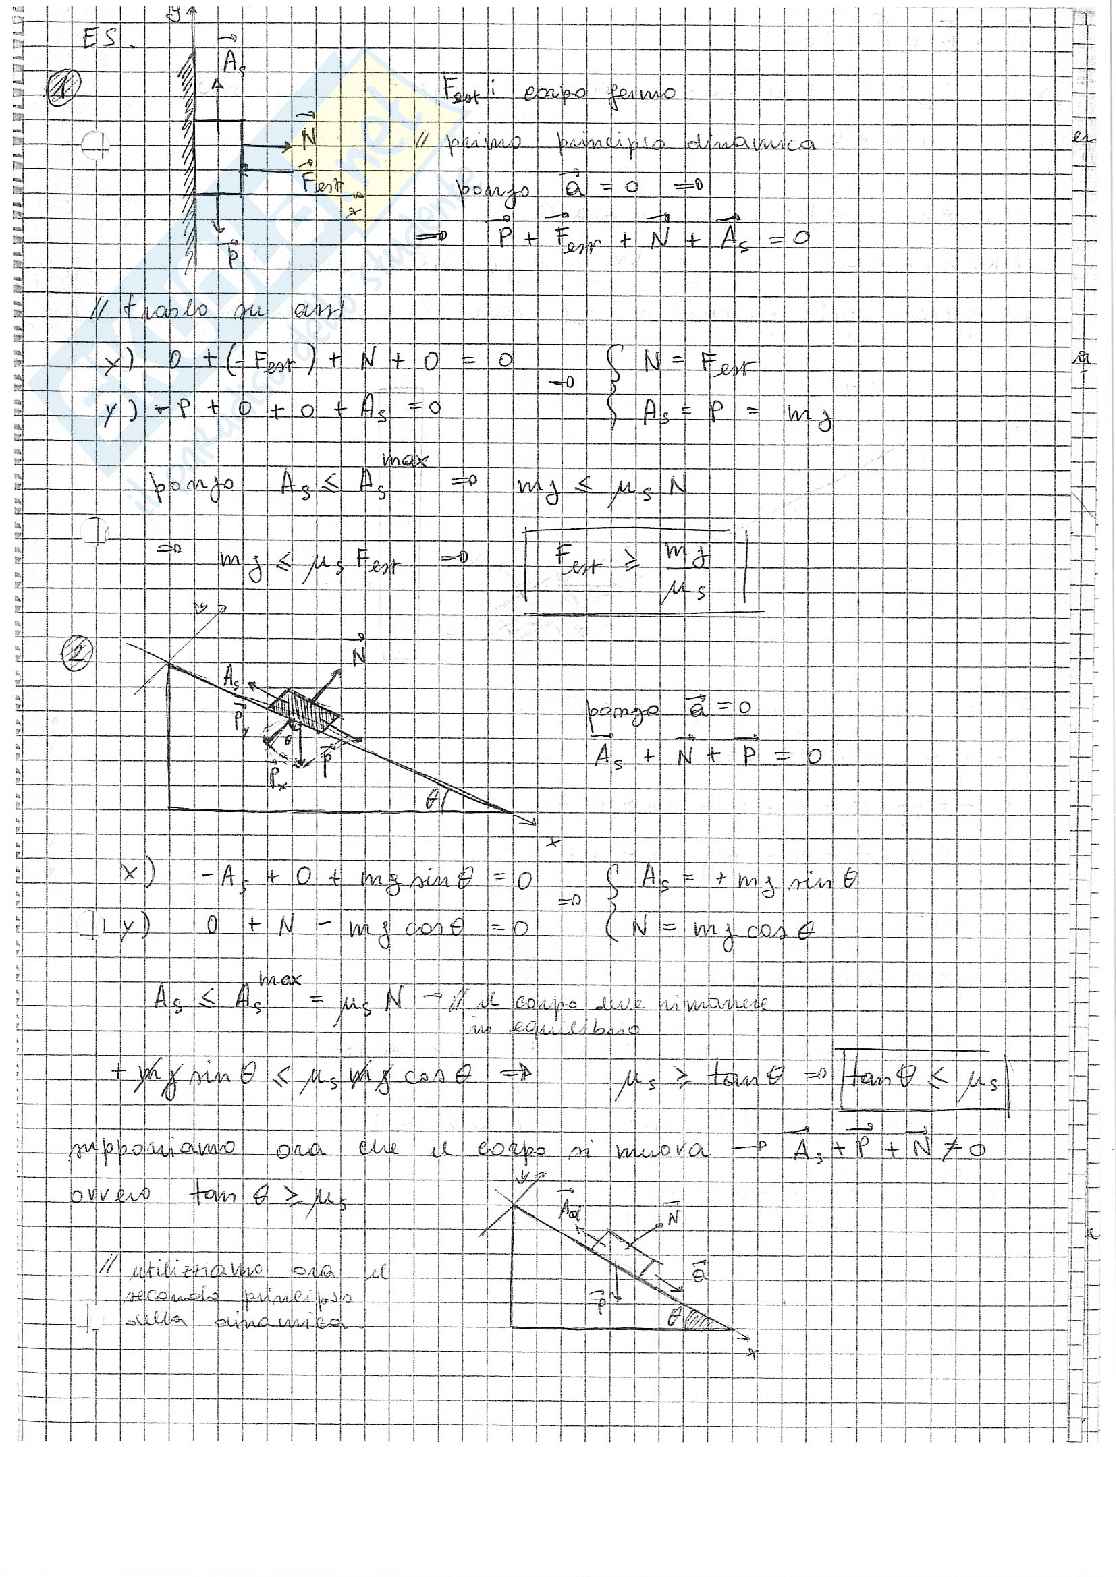 ES.
y
①
A⃗s
N⃗
F⃗est
x
P⃗
Fest: corpo fermo
// primo principio dinamica
pongo a⃗ = 0 ⇒
⇒ P⃗ + F⃗est + N⃗ + A⃗s = 0
// su assi
x) 0 + (-Fest) + N + 0 = 0 → { N = Fest
y) -P + 0 + 0 + As = 0 { As = P = mg
pongo As ≤ As^max ⇒ mg ≤ μs N
⇒ mg ≤ μs Fest ⇒ Fest ≥ mg/μs
②
y
N⃗
As
P⃗y
θ
P⃗x
P⃗
θ
x
pongo a⃗ = 0
A⃗s + N⃗ + P⃗ = 0
x) -As + 0 + mg sinθ = 0 ⇒ { As = + mg sinθ
y) 0 + N - mg cosθ = 0 { N = mg cosθ
As ≤ As^max = μs N → // il corpo deve rimanere
in equilibrio
+ mg sinθ ≤ μs mg cosθ ⇒ μs ≥ tanθ ⇒ tanθ ≤ μs
supponiamo ora che il corpo si muova → A⃗s + P⃗ + N⃗ ≠ 0
ovvero tanθ ≥ μs
y
A⃗d
N⃗
a⃗
P⃗
θ
x
// utilizziamo ora il
secondo principio
della dinamica